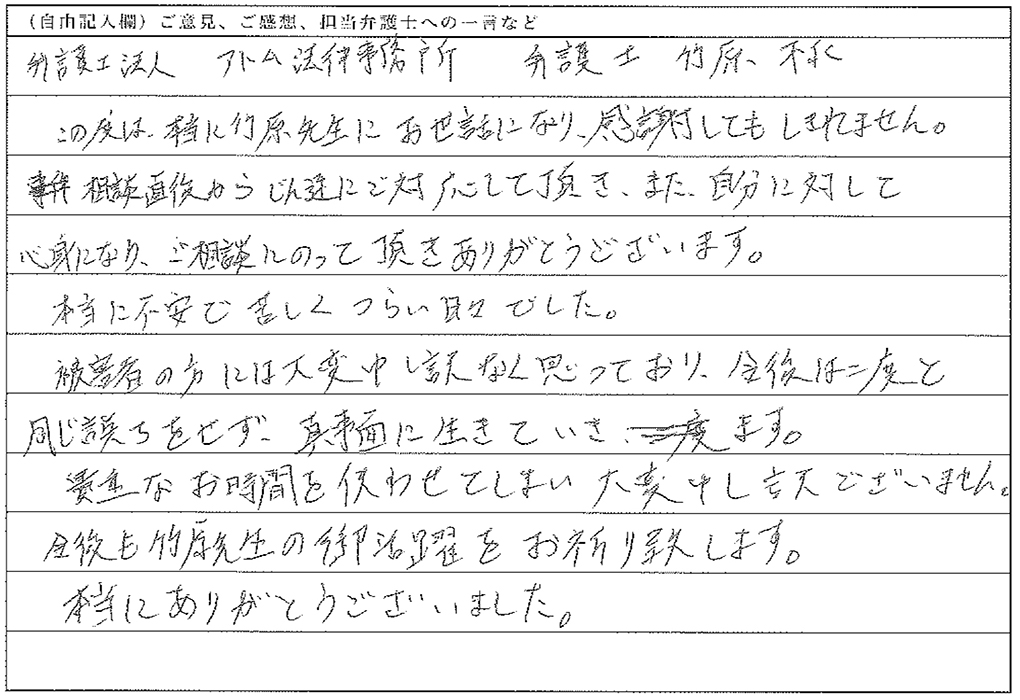 （自由記入欄）ご意見、ご感想、担当弁護士への一言など
弁護士法人 アトム法律事務所 弁護士 竹原
この度は、本当に竹原先生にお世話になり、感謝してもしきれません。
事件相談直後からじん速にご対応して頂き、また、自分に対して
心身になり、ご相談にのって頂きありがとうございます。
本当に不安で苦しくつらい日々でした。
被害者の方には大変申し訳なく思っており、今後は二度と
同じ誤ちをせず、真事面に生きていき、ます。
貴重なお時間を使わせてしまい大変申し訳ございません。
今後も竹原先生の御活躍をお祈り致します。
本当にありがとうございました。